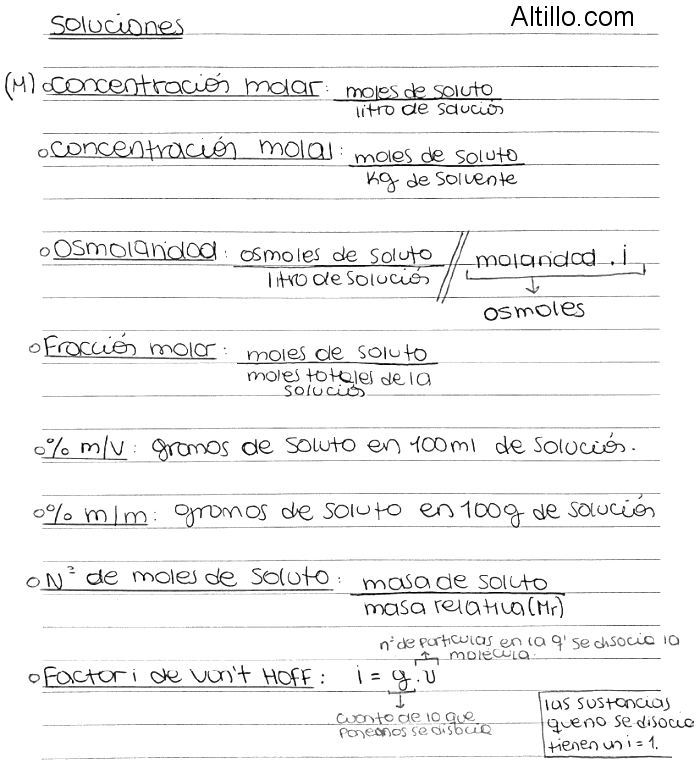 Altillo.com
Soluciones
(M) Concentración molar: moles de soluto
litro de solución
Concentración molal: moles de soluto
Kg de solvente
Osmolaridad: osmoles de soluto // molaridad . i
litro de solución
osmoles
Fracción molar: moles de soluto
moles totales de la
solución
% m/v: gramos de soluto en 100ml de solución.
% m/m: gramos de soluto en 100g de solución
Nº de moles de soluto: masa de soluto
masa relativa (Mr)
nº de particulas en la q' se disocia la
molécula.
Factor i de Van't Hoff: i = g . v
cuanto de lo que
ponemos se disocia
las sustancias
que no se disocia
tienen un i = 1.